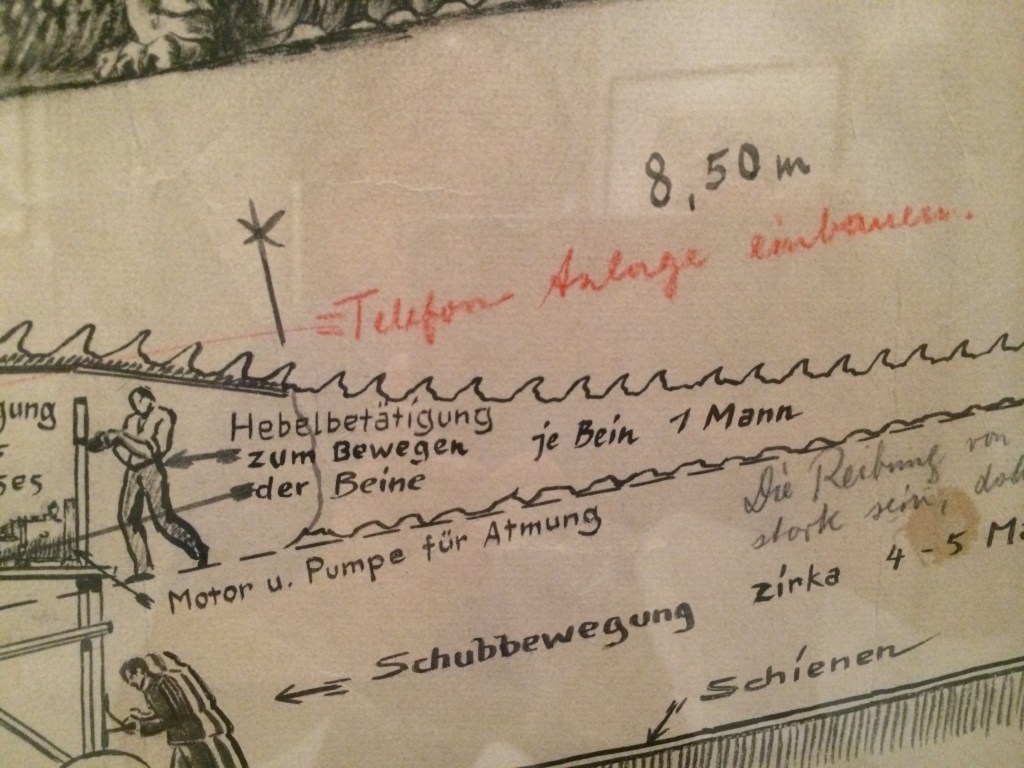 8,50 m
Telefon Anlage einbauen.
gung
ses
Hebelbetätigung
zum Bewegen je Bein 1 Mann
der Beine
Motor u. Pumpe für Atmung
Die Reibung von
stark sein,
zirka 4-5 Ma
Schubbewegung
Schienen